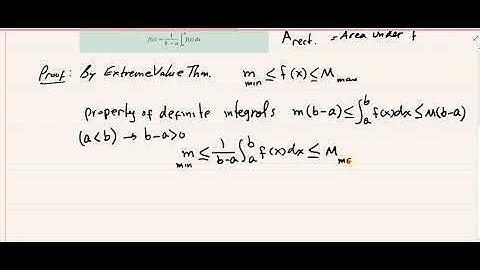 f(c) = 1/(b − a) ∫_a^b f(x) dx
A rect. = Area under f
Proof: By Extreme Value Thm. m_min ≤ f(x) ≤ M_max
property of definite integrals m(b-a) ≤ ∫_a^b f(x)dx ≤ M(b-a)
(a<b) → b-a>0
m_min ≤ 1/(b-a) ∫_a^b f(x)dx ≤ M_ma